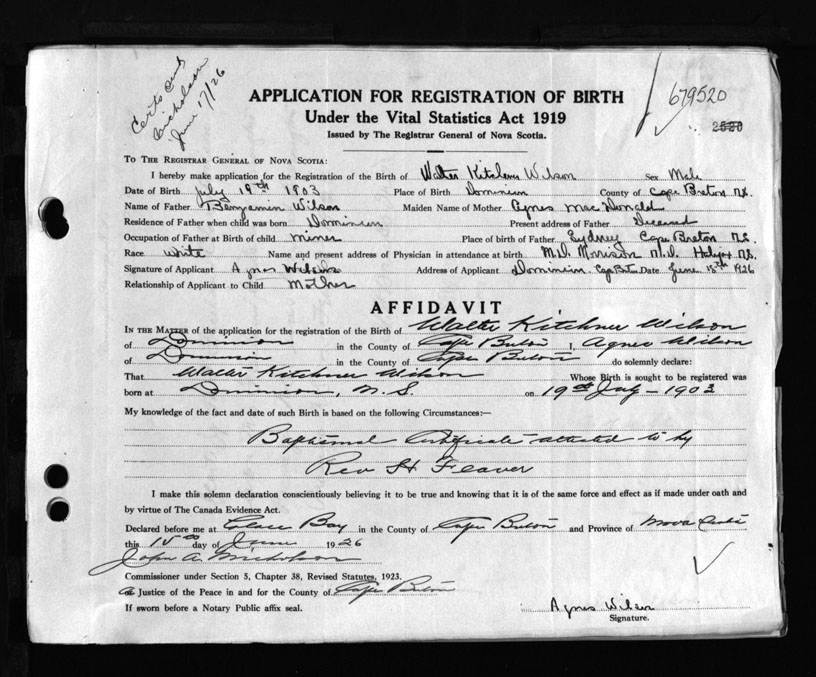 Certs sent
Nicholson
June 17/26
679520
2520
APPLICATION FOR REGISTRATION OF BIRTH
Under the Vital Statistics Act 1919
Issued by The Registrar General of Nova Scotia.
TO THE REGISTRAR GENERAL OF NOVA SCOTIA:
I hereby make application for the Registration of the Birth of Walter Kitchner Wilson Sex Male
Date of Birth July 19th 1903 Place of Birth Dominion County of Cape Breton N.S.
Name of Father Benjamin Wilson Maiden Name of Mother Agnes MacDonald
Residence of Father when child was born Dominion Present address of Father Deceased
Occupation of Father at Birth of child miner Place of birth of Father Sydney Cape Breton N.S.
Race White Name and present address of Physician in attendance at birth M.D. Morrison M.D. Halifax N.S.
Signature of Applicant Agnes Wilson Address of Applicant Dominion, Cape Breton Date June 15th 1926
Relationship of Applicant to Child Mother
AFFIDAVIT
IN THE MATTER of the application for the registration of the Birth of Walter Kitchner Wilson
of Dominion in the County of Cape Breton I, Agnes Wilson
of Dominion in the County of Cape Breton do solemnly declare:
That Walter Kitchner Wilson Whose Birth is sought to be registered was
born at Dominion, N.S. on 19th July - 1903
My knowledge of the fact and date of such Birth is based on the following Circumstances:—
Baptismal Certificate attested to by
Rev H Feaver
I make this solemn declaration conscientiously believing it to be true and knowing that it is of the same force and effect as if made under oath and
by virtue of The Canada Evidence Act.
Declared before me at Glace Bay in the County of Cape Breton and Province of Nova Scotia
this 15th day of June 1926
John A. Nicholson
Commissioner under Section 5, Chapter 38, Revised Statutes, 1923.
or Justice of the Peace in and for the County of Cape Breton
If sworn before a Notary Public affix seal.
Agnes Wilson
Signature.